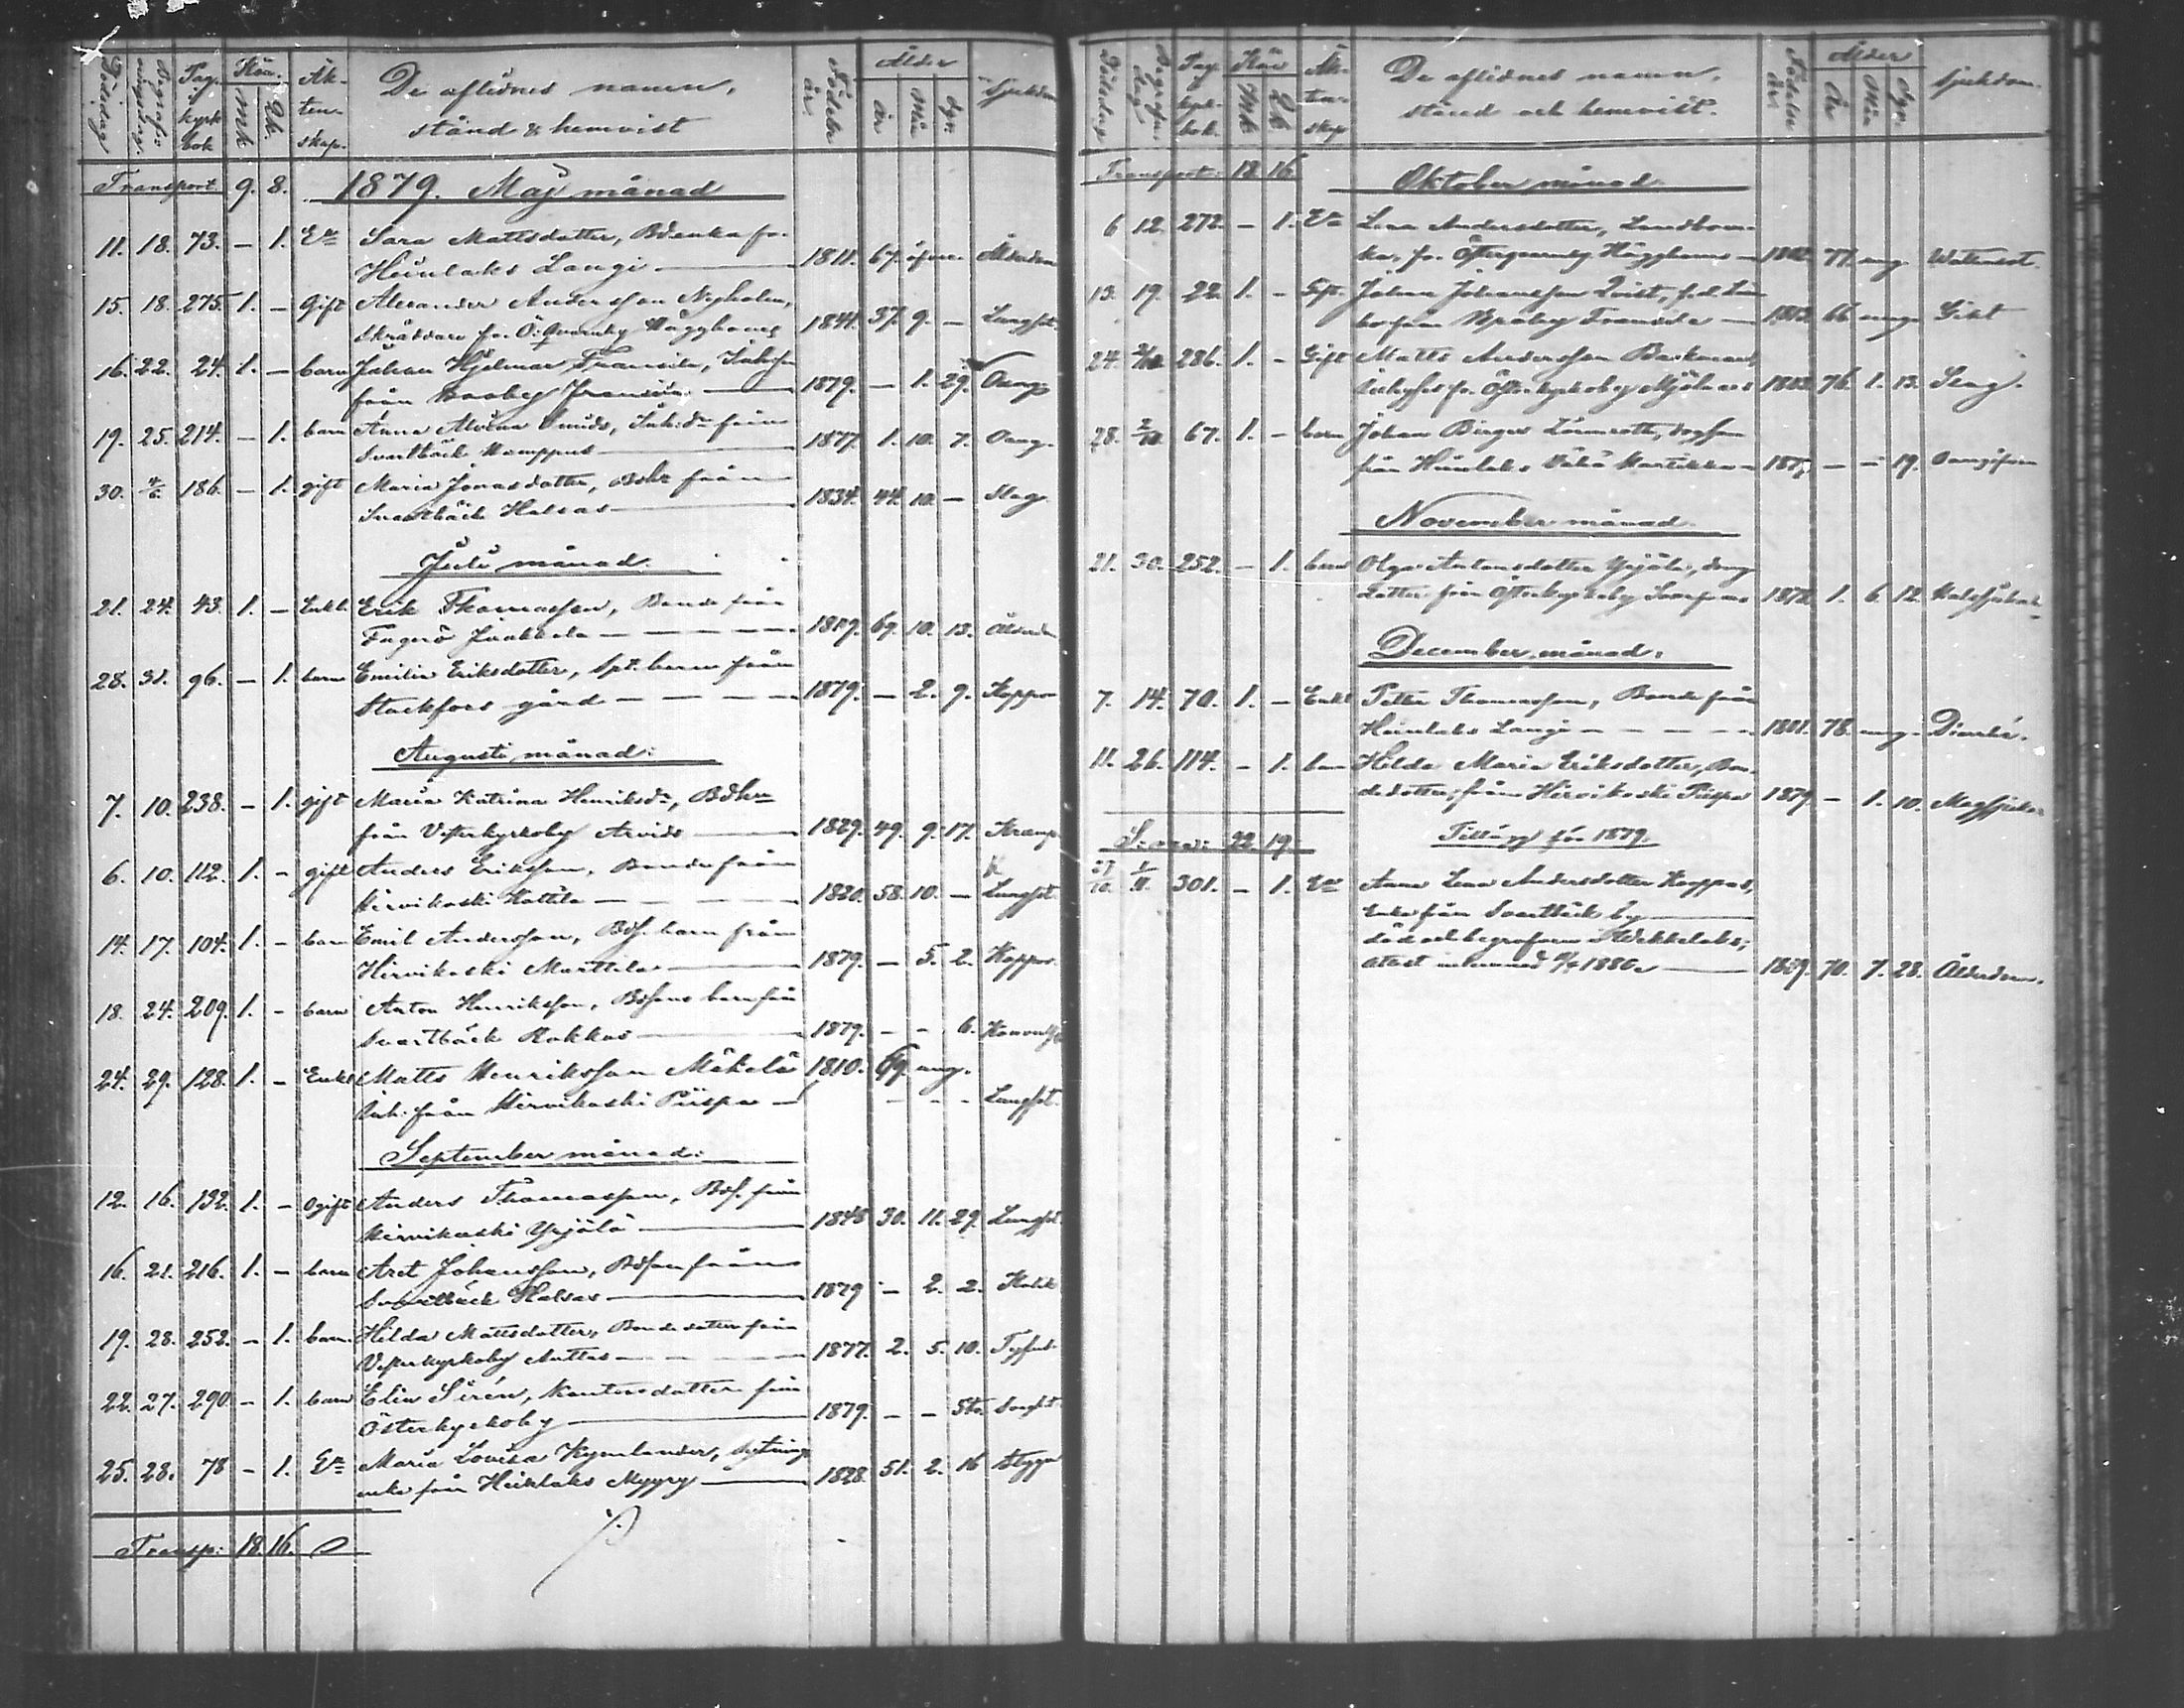 Dödsdag Begrafningsdag. Pag. i kyrkbok Kön. Mk Qk. Äktenskap. De aflidnes namn, stånd & hemvist Födelse år. Ålder år Mån Dgr. Sjukdom
Transport 9. 8. 1879. Maj månad
11. 18. 73. – 1. Ea Sara Mattsdotter, Bdenka fr.
Heinlaks Langi 1811. 67. öfver. Ålderdom
15. 18. 275. 1. – Gift Alexander Andersson Nyholm,
Skräddare fr. Ö. Qvarnby Häggboms 1841. 37. 9. – Lungsot.
16. 22. 24. 1. – barn Johan Hjelmar Framsila, Inh.
från Framsila 1879. – 1. 29. Oang.
19. 25. 214. – 1. barn Anna Alvina Smids, Inh.dr från
Svartbäck Kamppus 1877. 1. 10. 7. Oang.
30. 4/6. 186. – 1. gift Maria Jonasdotter, från
Svartbäck Halsas 1834. 44. 10. – Mag.
Juli månad.
21. 24. 43. 1. – Enkl. Erik Thomasson, Bonde från
Fagerö Jaakkola 1809. 69. 10. 13. Ålderdom
28. 31. 96. – 1. barn Emilia Eriksdotter, Spt. barn från
Stockfors gård 1879. – 2. 9. Koppor
Augusti månad:
7. 10. 238. – 1. gift Maria Katrina Henriksdr,
från Vesterkyrkoby Arvids 1829. 49. 9. 17. Kramp
6. 10. 112. 1. – gift Anders Eriksson, Bonde från
Hirvikoski Kattila 1820. 58. 10. – Lungsot.
14. 17. 104. 1. – barn Emil Andersson, Bds. barn från
Hirvikoski Marttila 1879. – 5. 2. Koppor.
18. 24. 209. 1. – barn Anton Henriksson, barn från
Svartbäck Rakkas 1879. – – 6.
24. 29. 128. 1. – Enkl Matts Henriksson Mäkelä 1810. 69. ung.
Inh. från Hirvikoski Piispa – – – – Lungsot.
September månad:
12. 16. 132. 1. – Ogift Anders Thomasson, Bds. från
Hirvikoski Yrjälä 1848 30. 11. 29. Lungsot
16. 21. 216. 1. – barn Johansson, från
Svartbäck Halsas 1879 – 2. 2. Kolik
19. 28. 252. – 1. barn. Hilda Mattsdotter, Bondedotter från
Vesterkyrkoby 1877. 2. 5. 10.
22. 27. 290 – 1. barn Elin Sirén, Kantorsdotter från
Österkyrkoby 1879. – –
25. 28. 78 – 1. Ea Maria Lovisa Kymlander, Sytnings
enka från Heinlaks Myyry 1828. 51. 2. 16
Transp: 18. 16.
Dödsdag Begrafn. dag Pag. kyrk. bok. Kön Mk Qk Äktenskap De aflidnes namn, stånd och hemvist. Födelse år Ålder År Mån Dgr. Sjukdom.
Transport: 18 16 Oktober månad.
6 12. 272. – 1. Ea Lena Andersdotter, Landbon-
ka, fr. Österqvarnby Häggboms 1802. 77. ung Wattusot.
13. 19. 22. 1. – Gift. Johan Johansson Qvist, f.d.
från Broby Framsila 1813. 66 unge Gikt
24. 2/11 286. 1. – Gift Matts Andersson Backman,
fr. Österkyrkoby Mjölnars 1803. 76. 1. 13. Slag.
28. 2/11 67. 1. – barn Johan Birger Lönnroth,
från Heinlaks Vähä Martikka 1879 – – 19. Oangifven
November månad.
21. 30. 252. – 1. barn Olga Antonsdotter Yrjälä,
dotter från Österkyrkoby 1878. 1. 6. 12.
December månad:
7. 14. 70. 1. – Enkl Petter Thomasson, Bonde från
Heinlaks Langi 1801. 78. ung. Diarrhé.
11. 26. 114. – 1. barn Hilda Maria Eriksdotter, Bon-
dedotter, från Hirvikoski Piispa 1879. – 1. 10.
Summa: 22. 19. Tillägg för 1879.
27/10. 1/11. 301. – 1. Ea Anna Lena Andersdotter Kooppas,
Enka från Svartbäck by
död och begrafven i Wekkelaks;
attest 1880. 1809. 70. 7. 28. Ålderdom.